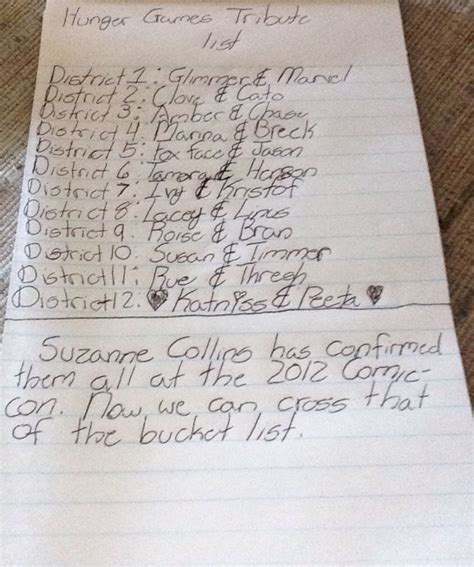 Hunger Games Tribute
list
District 1: Glimmer & Marvel
District 2: Clove & Cato
District 3: Amber & Chase
District 4: Manna & Breck
District 5: Fox face & Jason
District 6: Tamora & Henson
District 7: Ivy & Kristof
District 8: Lacey & Linus
District 9: Roise & Bran
District 10: Susan & Timmer
District 11: Rue & Thresh
District 12: ♥ Katniss & Peeta ♥
Suzanne Collins has confirmed
them all at the 2012 Comic-
con. Now, we can cross that
of the bucket list.